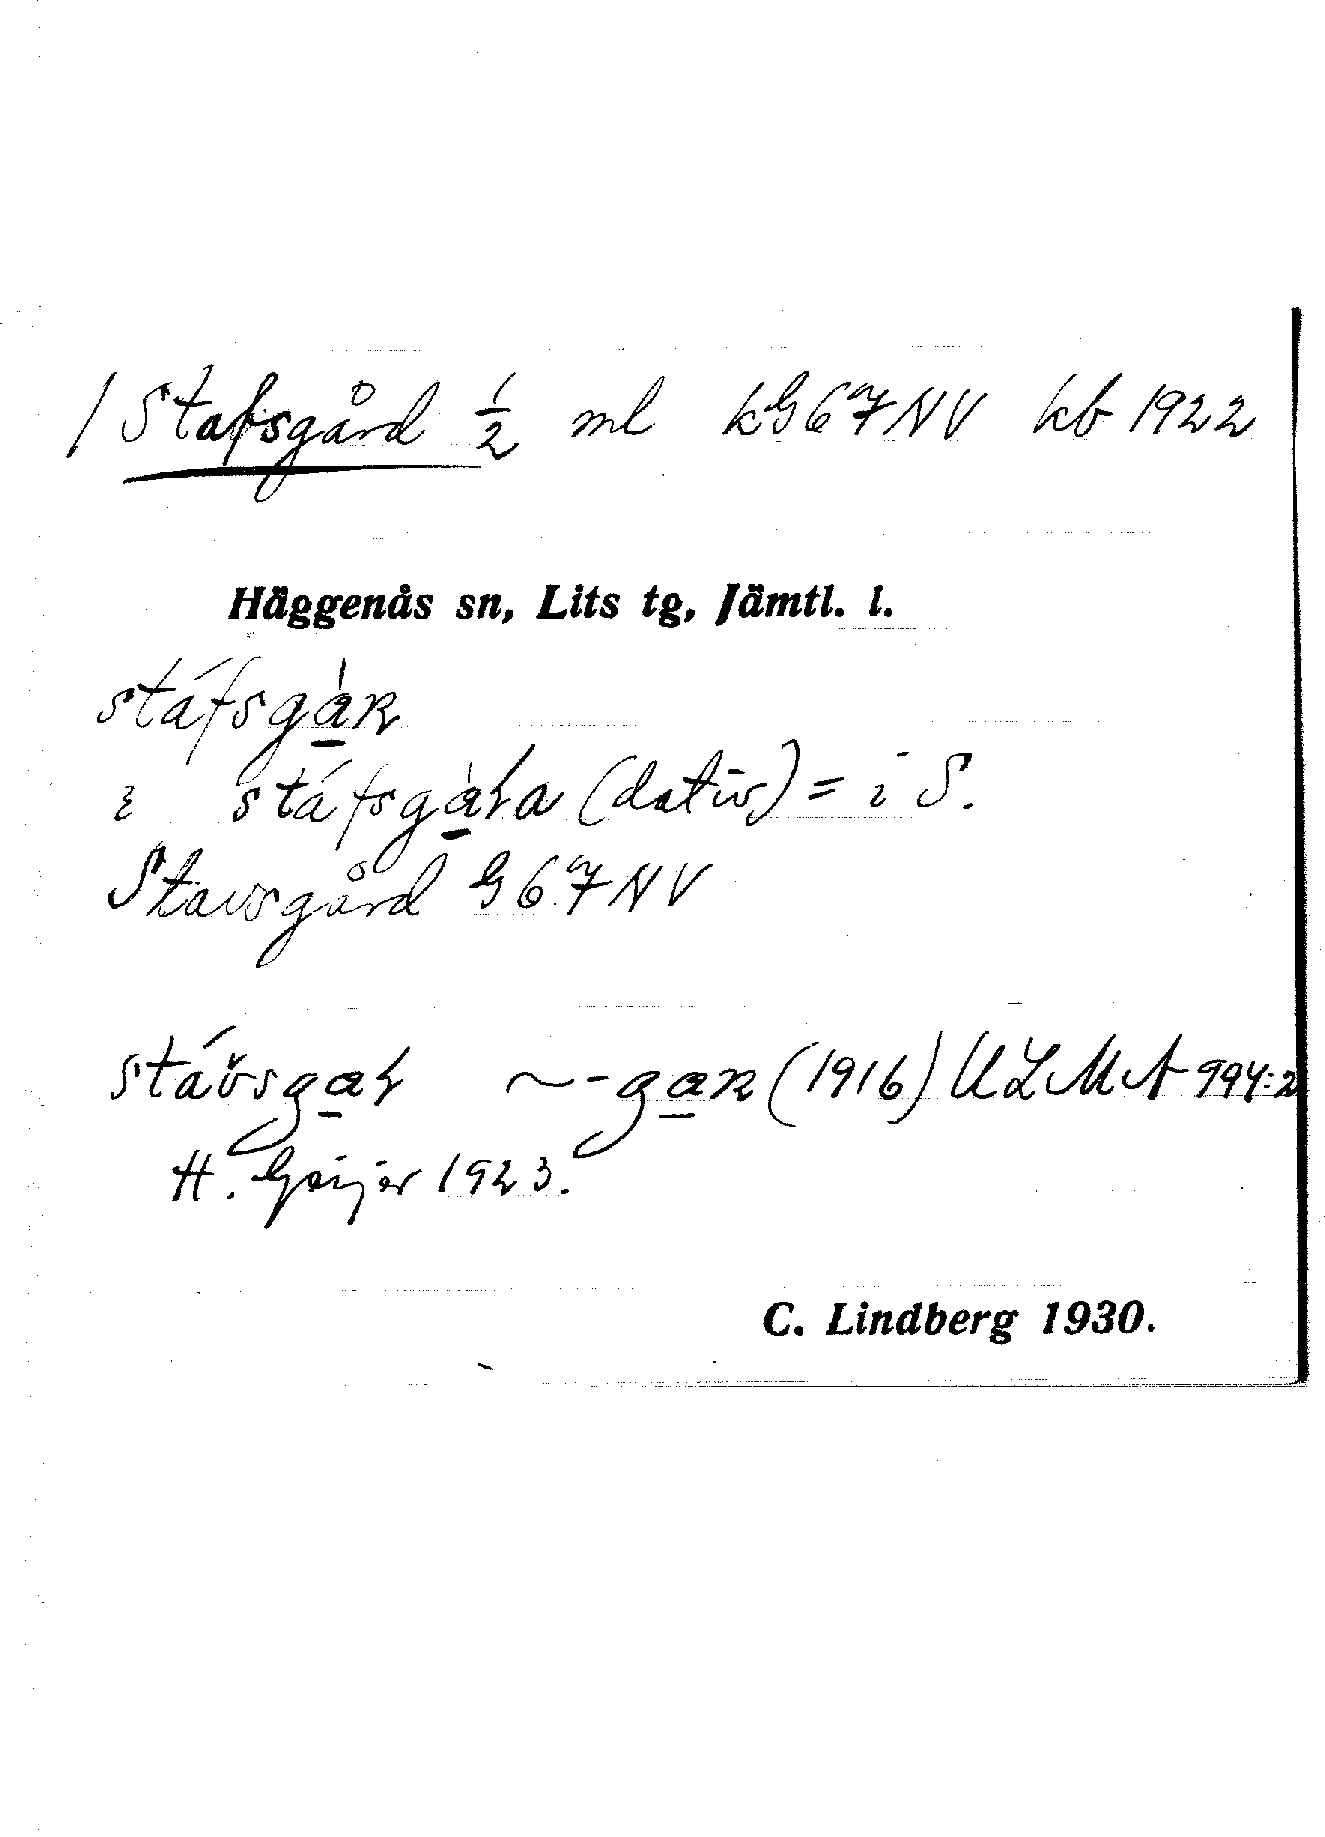 / Stafsgård ½ ml kG67NV kb 1922
Häggenås sn, Lits tg, Jämtl. l.
stáfsgàr
i stáfsgàra (dativ) = i S.
Stavsgård G67NV
stávsgar ~ -gar (1916) ULMA 994:2
H. Geijer 1923.
C. Lindberg 1930.